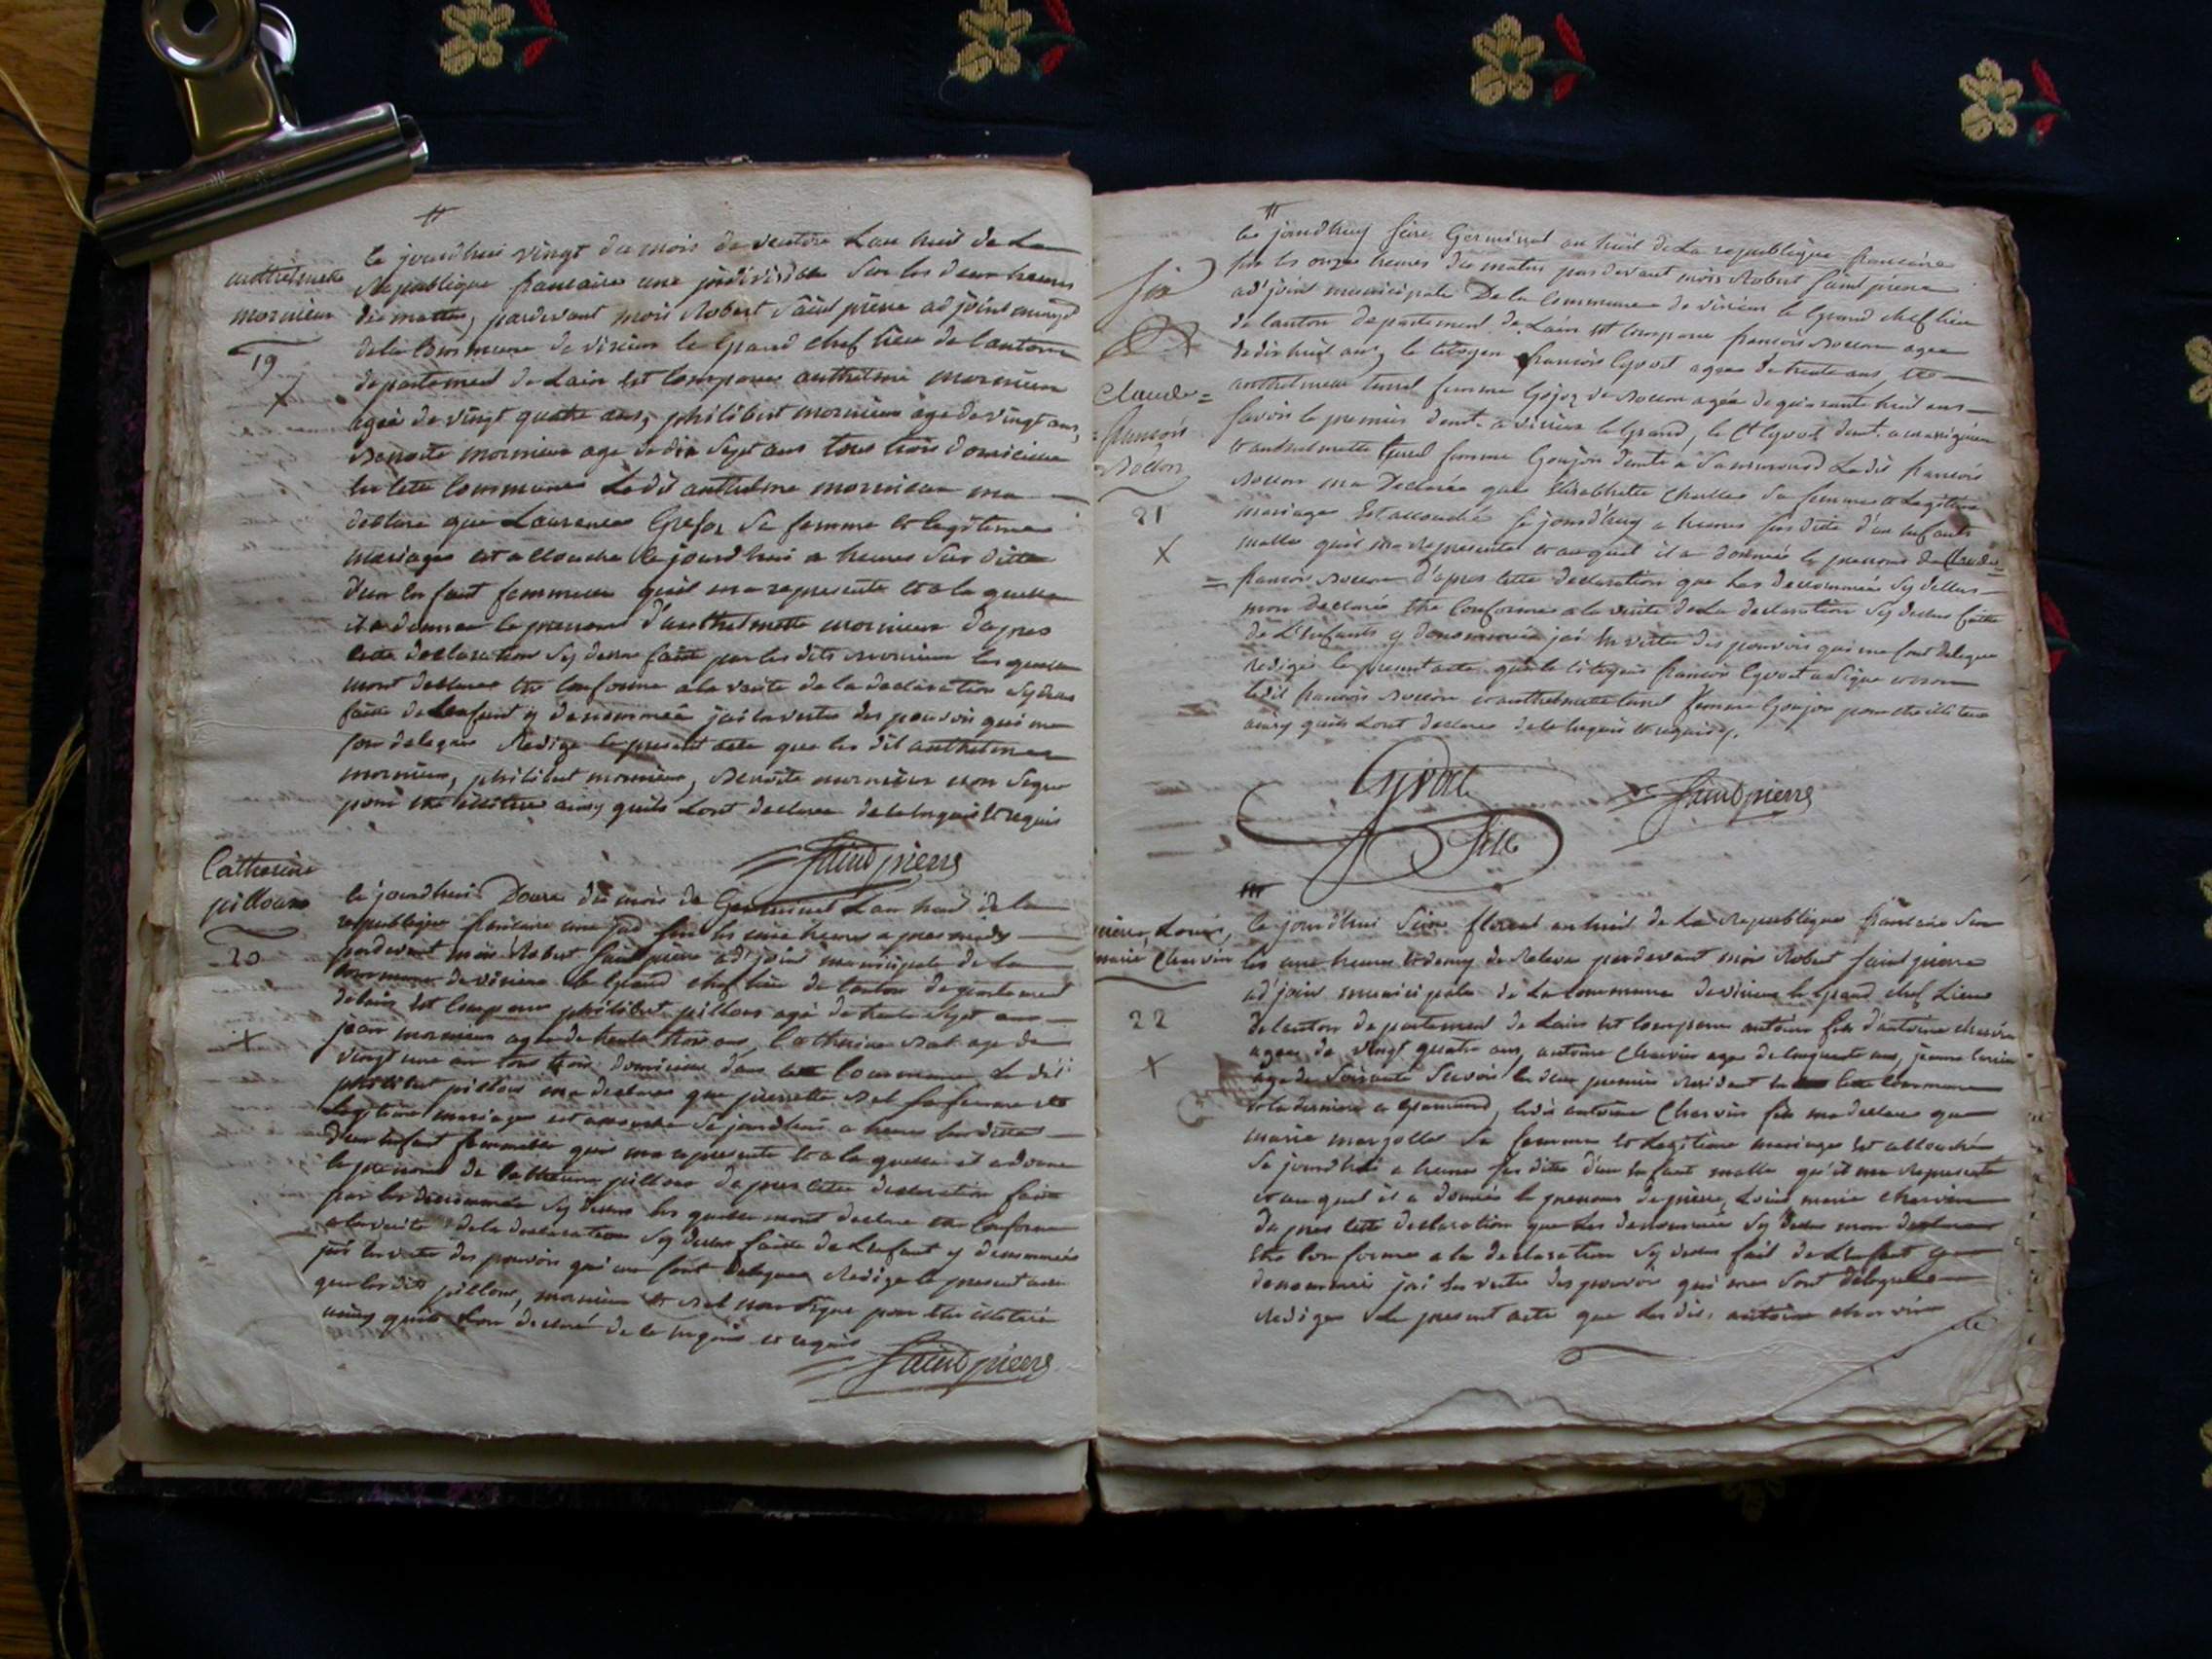 anthelmette
mornieux
19
ce jourdhui vingt du mois de ventose Lan huit de La
Republique francaise une indivisible Sur les deux heures
du matin, pardevant mois Robert Saint pierre adjoint
dela Commune de virieux le Grand chef lieu de Canton
departement de Lain Est Comparu anthelme mornieux
agée de vingt quatre ans, philibert mornieux age de vingt ans,
Benoite mornieux age de dix Sept ans tous trois domicilies
Cete Commune Ledit anthelme mornieux ma
declare que Laurence Sa femme et legitime
mariage est allouche Ce jourdhui a heures Sus ditte
dun Enfant femmelle quil ma represente et a la quelle
il a donnee le prenom d'anthelmette mornieux dapres
cette declaration Sy dessus faitte par les dits mornieux les quelles
mont declares Etre Conforme a la verite de la declaration Sy dessus
faitte de Lenfant y denommée jai En vertu des pouvoirs qui me
son delegues Redige le present acte que les dit anthelme
mornieux, philibert mornieux, Benoite mornieux non Signe
pour Etre illitere ainsy quils Lont declaree de ce Enquis Et requis
Saint pierre
Catherine
pilloux
20
ce jourdhui Douze du mois de Germinal Lan huit de la
republique francaise une Sur les heures apres midy
pardevant mois Robert Saint pierre ad'joint municipale de la
Commune de virieux le Grand chef lieu de Canton departement
de Lain Est Comparu philibert pilloux agé de trente Sept ans
jean mornieux agee de trente trois ans, Catherine age de
vingt une an tous trois domicilies dans Commune Le dit
philibert pilloux ma declaree que pierrette Sa femme et
Legitime mariage est allouchee Ce jourdhui a heures Sus ditte
d'un Enfant femmelle quil ma represente Et a la quelle il a donne
le prenom de Catherine pilloux dapres Cette declaration faitte
par les denommés Sy dessus les quelles mont declare Etre Conforme
a la verite de la declaration Sy dessus faitte de Lenfant y denommée
jai En vertu des pouvoirs qui me sont delegues Redige le present acte
que les dits pilloux, mornieux Et non Signe pour Etre illitere
ainsy quils Lon declaré de ce Enquis et requis
Saint pierre
Six
Claude =
françois
21
ce jourdhuy Seize Germinal an huit de La republique francaise
Sur les onze heures du matin par devant mois Robert Saint pierre
ad'joint municipale De la Commune de virieux le Grand chef lieu
de Canton departement de Lain Est Comparu francois agee
de dix huit ans, le Citoyen francois Cyvoct agee de trente ans, et
anthelmette femme Goujon agée de quarante huit ans
Savoir le premier demt. a virieux le Grand, le Ct Cyvoct demt.
et anthelmette femme Goujon demte a Ledit francois
ma Declarée que Sa femme et Legitime
mariage Est allouché Ce jourd'huy a heures Sus ditte d'un Enfants
malle quil ma Represente et auquel il a donnée le prenom de Claude =
= francois D'apres Cette declaration que Les denommés Sy dessus
mon declarés Etre Conforme a la verite de La declaration Sy dessus faitte
de L'Enfants y denommée jai En vertu des pouvoirs qui me sont delegue
redigee le present acte que le Citoyen francois Cyvoct a Signe et non
Ledit francois et anthelmette femme Goujon pour etre illitere
ainsy quils Lont declaree de ce Enquis Et requis.
Cyvoct
Saint pierre
pierre, Louis,
marie Chervin
22
ce jourd'hui Sixe floreal an huit de La Republique francaise Sur
les heures Et demy de Releve pardevant mois Robert Saint pierre
ad'join municipale de La Commune de virieux le Grand chef Lieux
de Canton departement de Lain Est Comparu antoine fils d'antoine chervin
agee de vingt quatre ans, antoine Chervin agee de Cinquante ans, jeanne
age de Soixante Savoir les deux premiers Resident Commune
et la derniere a, Ledit antoine Chervin fils ma declare que
marie Sa femme Et Legitime mariage Est allouchée
Ce jourdhui a heures Sus ditte d'un Enfant malle qu'il ma Represente
et au quel il a donnée le prenom de pierre, Louis marie chervin
dapres Cette declaration que Les denommée Sy dessus mon declaree
Etre Conforme a la declaration Sy dessus fait de L'enfant y
denommée jai En vertu des pouvoir qui me Sont delegue
Redigee Le present acte que Les dit. antoine chervin